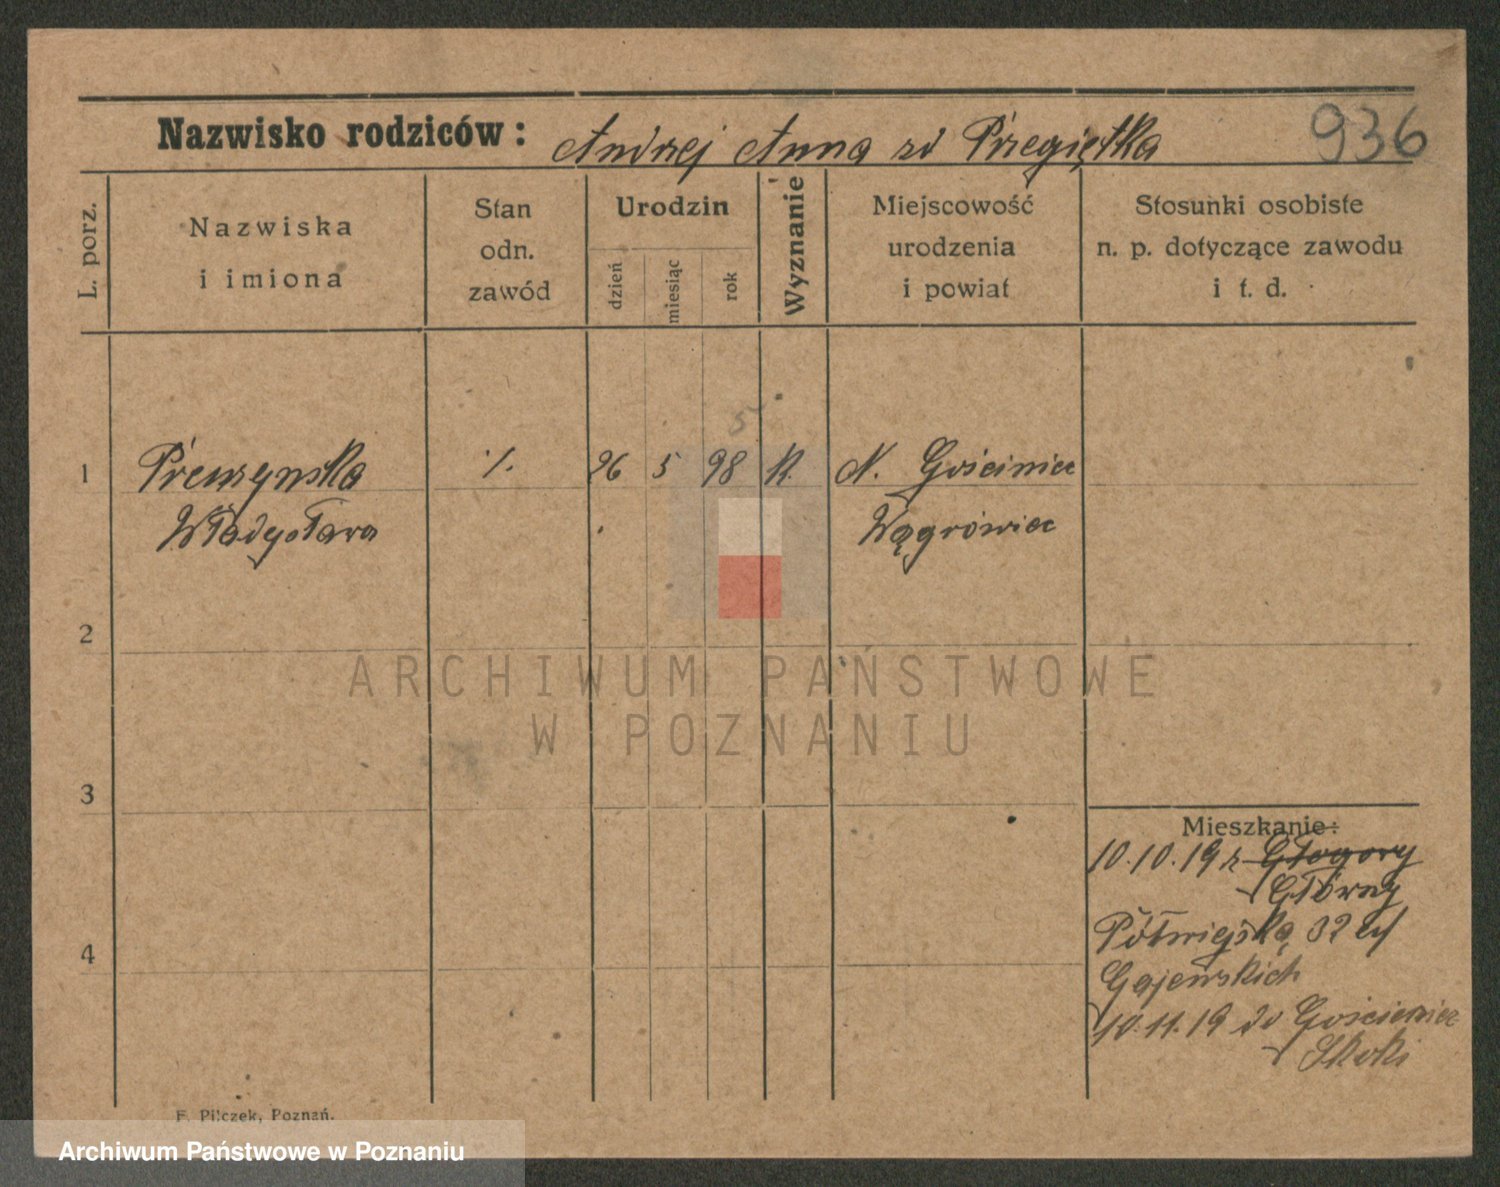 Nazwisko rodziców: Andrzej Anna zd Przegiętka 936
L. porz.
Nazwiska
i imiona
Stan
odn.
zawód
Urodzin
dzień
miesiąc
rok
Wyznanie
Miejscowość
urodzenia
i powiat
Stosunki osobiste
n. p. dotyczące zawodu
i t. d.
5
1 ·/. 26 5 98 K. N. Gościniec
Władysława Wągrówiec
2
ARCHIWUM PAŃSTWOWE
W POZNANIU
3
Mieszkanie:
10.10.19 z Głogowy
Główny
Półwiejska 32
Gajewskich
10.11.19 do Gościeniec
Skoki
4
F. Pilczek, Poznań.
Archiwum Państwowe w Poznaniu